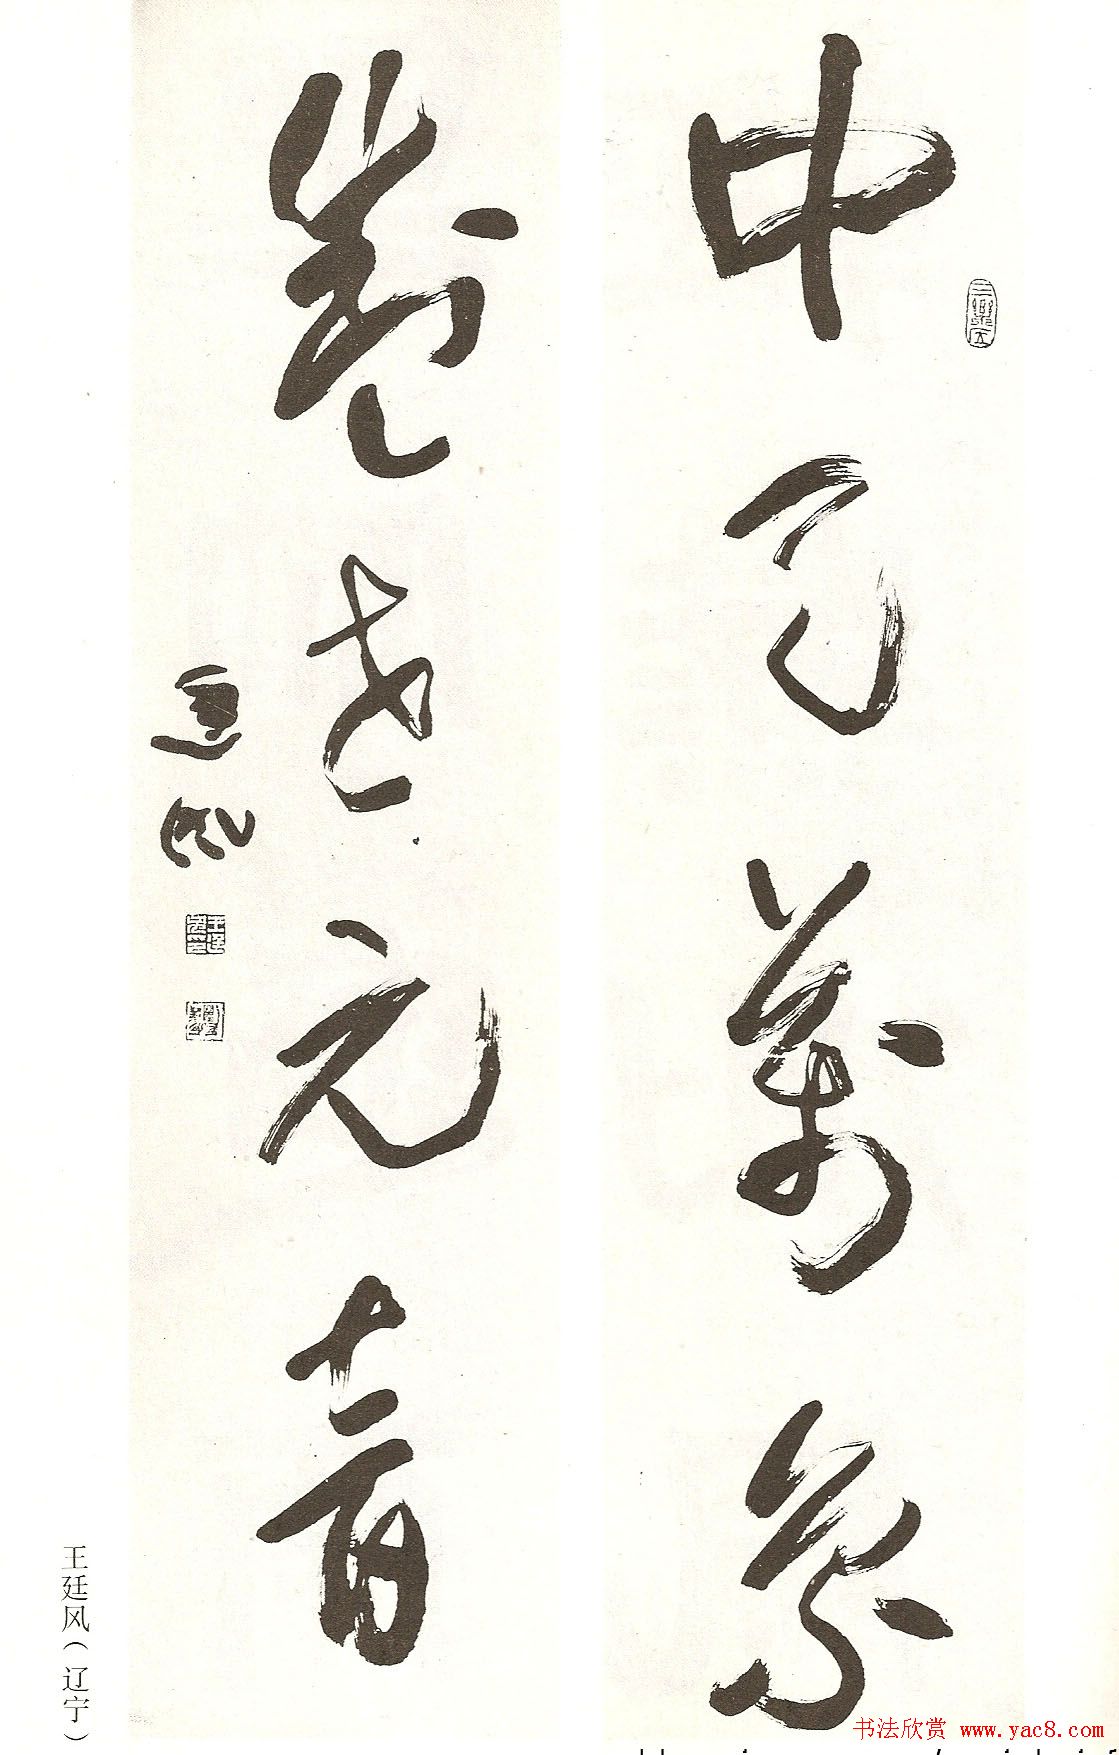 中
萬象
盛世元音
廷風
王廷风（辽宁）
书法欣赏 www.yac8.com